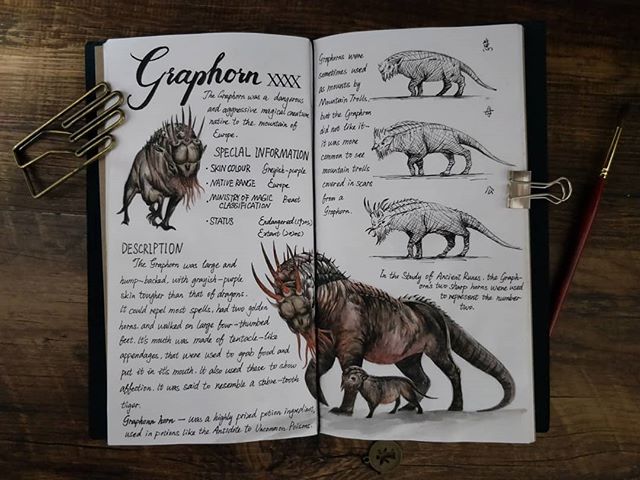 Graphorn XXXX
The Graphorn was a dangerous
and aggressive magical creature
native to the mountain of
Europe.
SPECIAL INFORMATION
• SKIN COLOUR Greyish-purple
• NATIVE RANGE Europe
• MINISTRY OF MAGIC Beast
CLASSIFICATION
• STATUS Endangered
Extant
DESCRIPTION
The Graphorn was large and
hump-backed, with grayish-purple
skin tougher than that of dragons.
It could repel most spells, had two golden
horns, and walked on large four-thumbed
feet. It's mouth was made of tentacle-like
appendages, that were used to grab food and
put it in it's mouth. It also used these to show
affection. It was said to resemble a sabre-tooth
tiger.
Graphorn horn — was a highly prized potion ingredient,
used in potions like the Antidote to Uncommon Poisons.
Graphorns were
sometimes used
as mounts by
Mountain Trolls,
but the Graphorn
did not like it—
it was more
common to see
mountain trolls
covered in scars
from a
Graphorn.
In the Study of Ancient Runes, the Graph-
orn's two sharp horns were used
to represent the number
two.